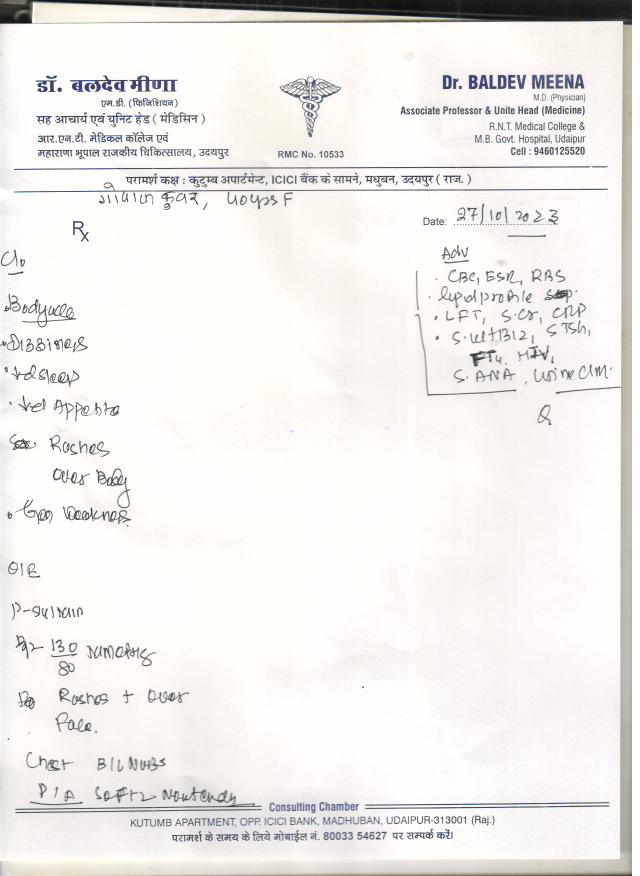 डॉ. बलदेव मीणा
एम.डी. (फिजिशियन)
सह आचार्य एवं यूनिट हेड ( मेडिसिन )
आर.एन.टी. मेडिकल कॉलेज एवं
महाराणा भूपाल राजकीय चिकित्सालय, उदयपुर
RMC No. 10533
Dr. BALDEV MEENA
M.D. (Physician)
Associate Professor & Unite Head (Medicine)
R.N.T. Medical College &
M.B. Govt. Hospital, Udaipur
Cell : 9460125520
परामर्श कक्ष : कुटुम्ब अपार्टमेण्ट, ICICI बैंक के सामने, मधुबन, उदयपुर ( राज. )
कुवर, F
Date: 27/10/2023
Rx
Adv
• CBC, ESR, RBS
• lipid profile
• LFT, S.Cr, CRP
• S.Vit B12, S TSH,
HIV,
S. ANA, Urine C/M.
C/o
• Bodyache
• Dizziness
• Sleep
• Appetite
Rashes
Over Body
• Gen Weakness.
O/E
P-
130/80 mmHg
Rashes + Over
Face.
Chest B/L NVBS
P/A Soft, Nontender
Consulting Chamber
KUTUMB APARTMENT, OPP. ICICI BANK, MADHUBAN, UDAIPUR-313001 (Raj.)
परामर्श के समय के लिये मोबाईल नं. 80033 54627 पर सम्पर्क करें।